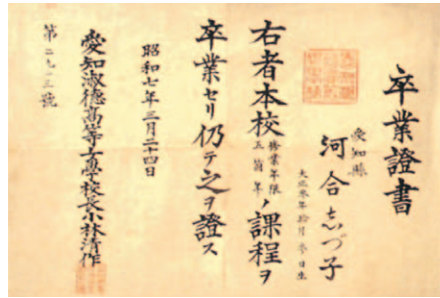 卒業證書
愛知縣
河合志づ子
大正参年拾月参日生
右者本校修業年限五箇年ノ課程ヲ
卒業セリ仍テ之ヲ證ス
昭和七年三月二十四日
愛知淑徳高等女學校長小林清作
第二九二三號